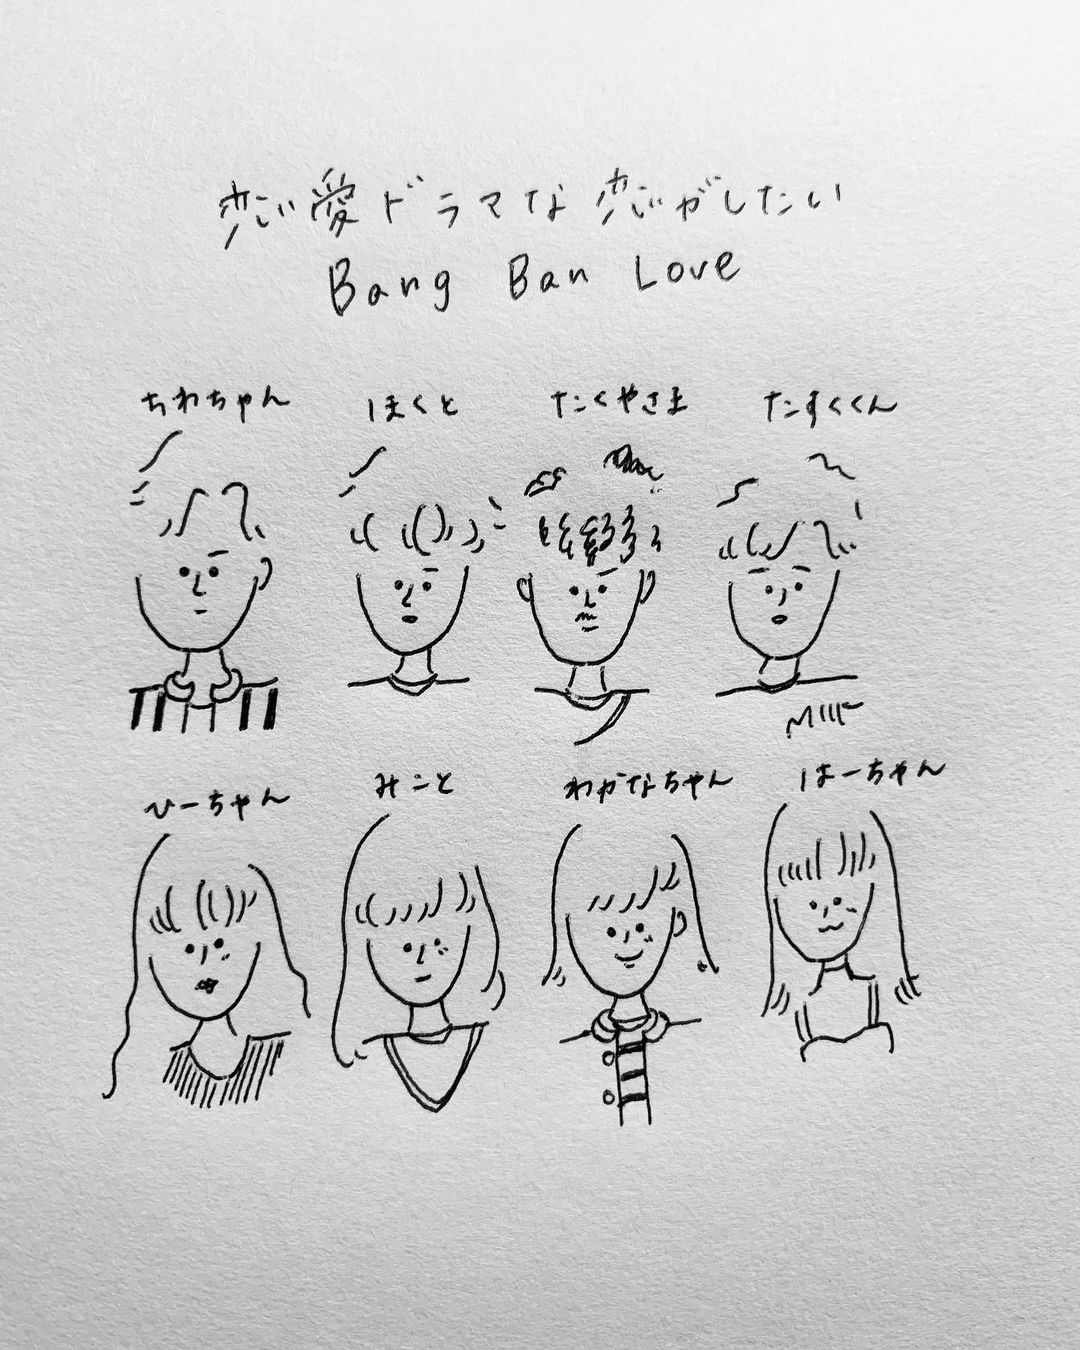 恋愛ドラマな恋がしたい
Bang Ban Love
ちわちゃん ほくと たくやさま たすくくん
ひーちゃん みこと わかなちゃん はーちゃん